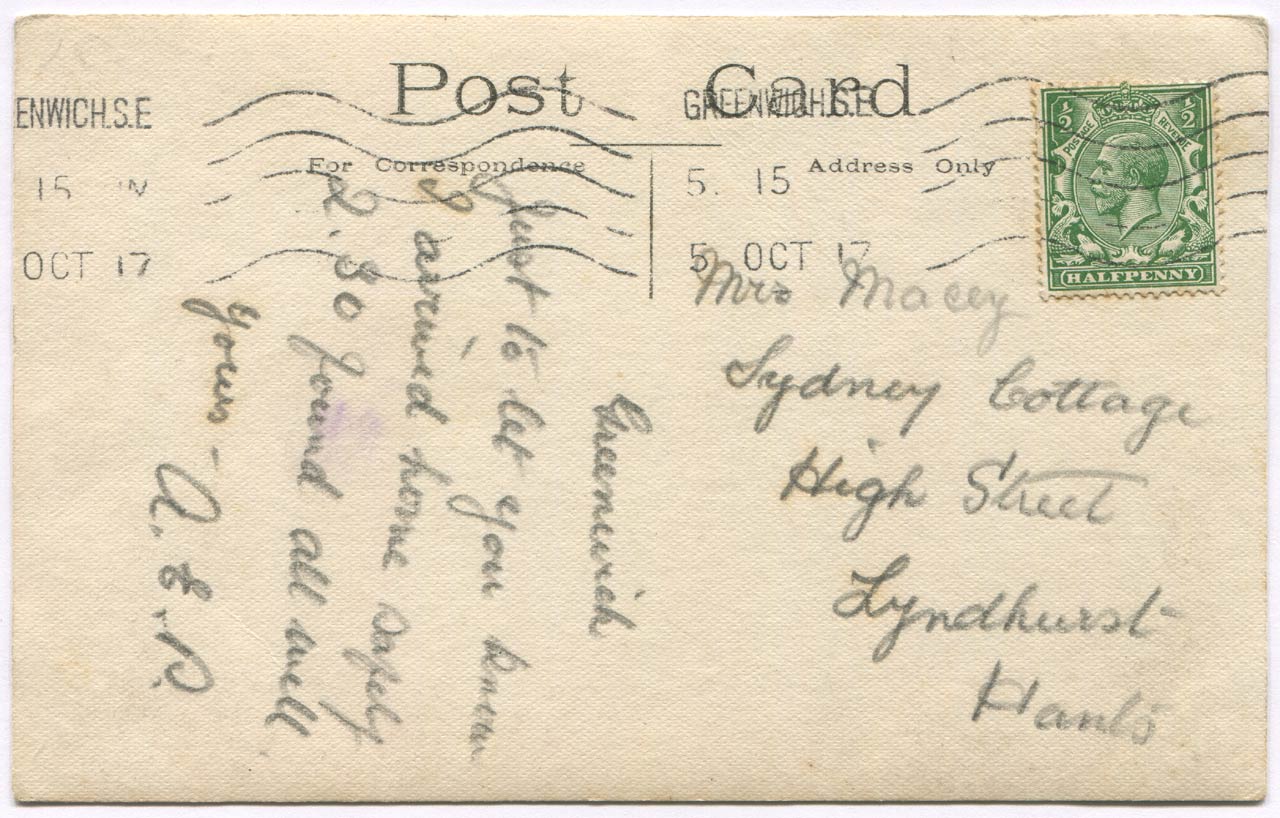 Post Card
For Correspondence
Address Only
GREENWICH.S.E
5. 15
5 OCT 17
ENWICH.S.E
15
OCT 17
½ ½
POSTAGE REVENUE
HALFPENNY
Greenwich
Just to let you know
I arrived home safely
2.30 found all well
Yours - A. E. P.
Mrs Macey
Sydney Cottage
High Street
Lyndhurst
Hants